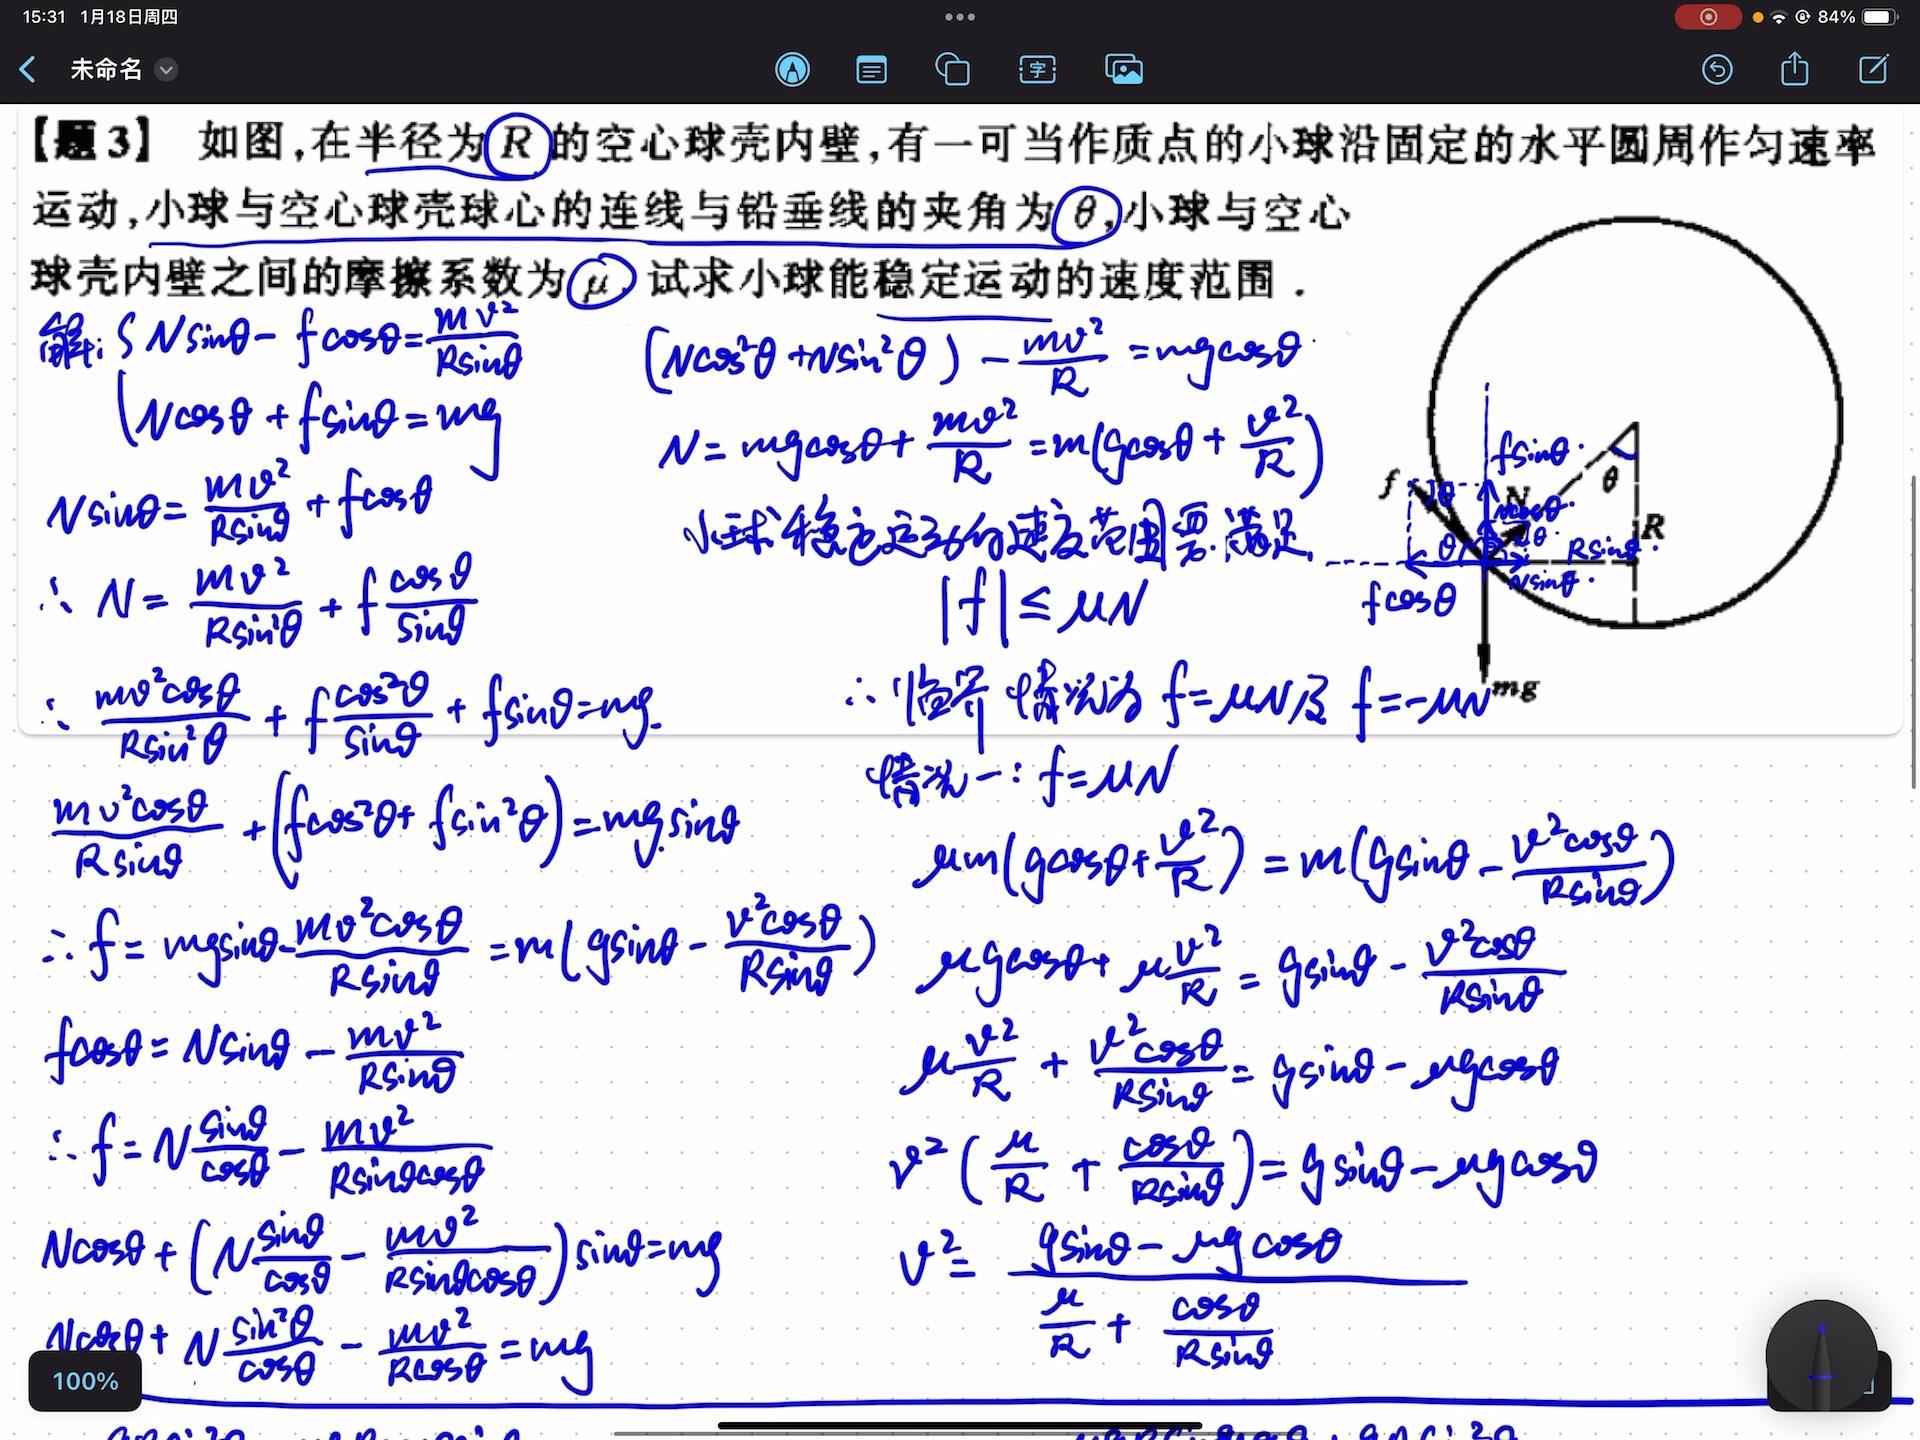 15:31 1月18日周四
84%
未命名
字
【题3】 如图,在半径为R的空心球壳内壁,有一可当作质点的小球沿固定的水平圆周作匀速率
运动,小球与空心球壳球心的连线与铅垂线的夹角为θ,小球与空心
球壳内壁之间的摩擦系数为μ,试求小球能稳定运动的速度范围.
解: { Nsinθ - fcosθ = mv²/Rsinθ
Ncosθ + fsinθ = mg
Nsinθ = mv²/Rsinθ + fcosθ
∴ N = mv²/Rsin²θ + f cosθ/sinθ
∴ mv²cosθ/Rsin²θ + f cos²θ/sinθ + fsinθ = mg
mv²cosθ/Rsinθ + (fcos²θ + fsin²θ) = mgsinθ
∴ f = mgsinθ - mv²cosθ/Rsinθ = m(gsinθ - v²cosθ/Rsinθ)
fcosθ = Nsinθ - mv²/Rsinθ
∴ f = N sinθ/cosθ - mv²/Rsinθcosθ
Ncosθ + (N sinθ/cosθ - mv²/Rsinθcosθ)sinθ = mg
Ncosθ + N sin²θ/cosθ - mv²/Rcosθ = mg
(Ncos²θ + Nsin²θ) - mv²/R = mgcosθ
N = mgcosθ + mv²/R = m(gcosθ + v²/R)
小球稳定运动的速度范围要满足
|f| ≤ μN
∴ 临界情况为 f = μN 及 f = -μN
情况一: f = μN
μm(gcosθ + v²/R) = m(gsinθ - v²cosθ/Rsinθ)
μgcosθ + μ v²/R = gsinθ - v²cosθ/Rsinθ
μ v²/R + v²cosθ/Rsinθ = gsinθ - μgcosθ
v²(μ/R + cosθ/Rsinθ) = gsinθ - μgcosθ
v² = (gsinθ - μgcosθ)/(μ/R + cosθ/Rsinθ)
fsinθ
f
θ
N
Ncosθ
θ
θ
R
Rsinθ
θ
Nsinθ
fcosθ
mg
100%